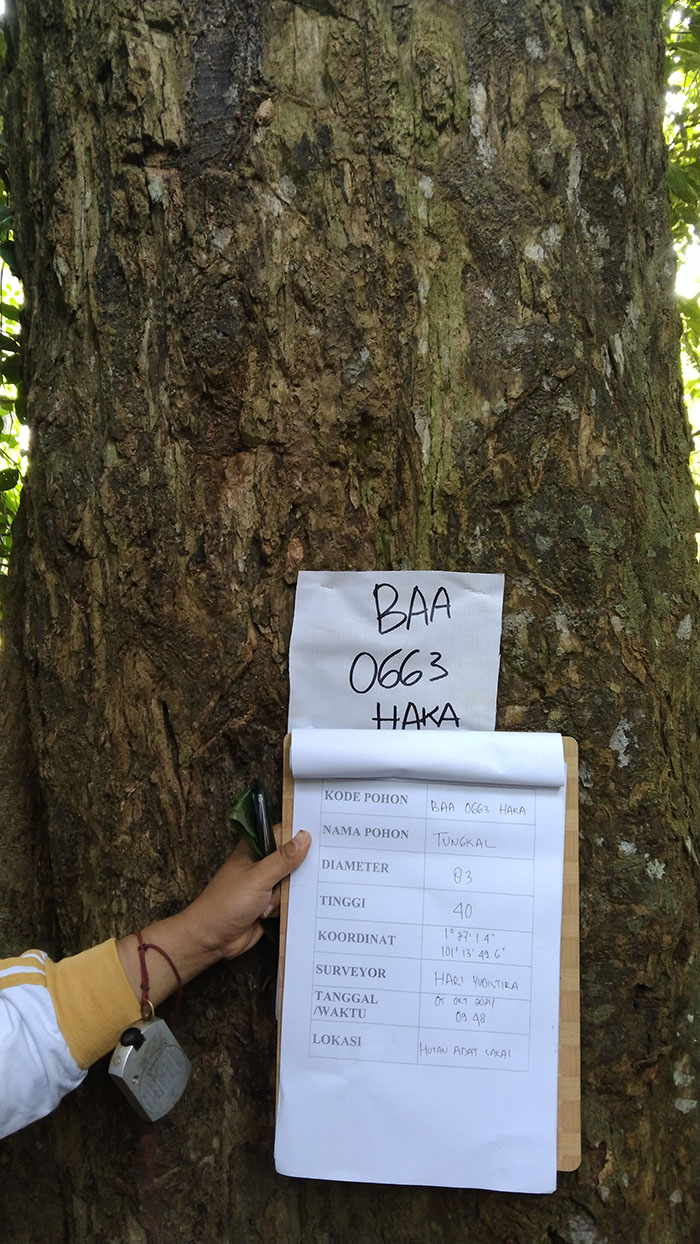 BAA
0663
HAKA
KODE POHON BAA 0663 HAKA
NAMA POHON TUNGKAL
DIAMETER 83
TINGGI 40
KOORDINAT 1° 27' 1.4"
101° 13' 49.6"
SURVEYOR HARI YUDISTIRA
TANGGAL 05 OKT 2024
/WAKTU 09 48
LOKASI HUTAN ADAT SAKAI